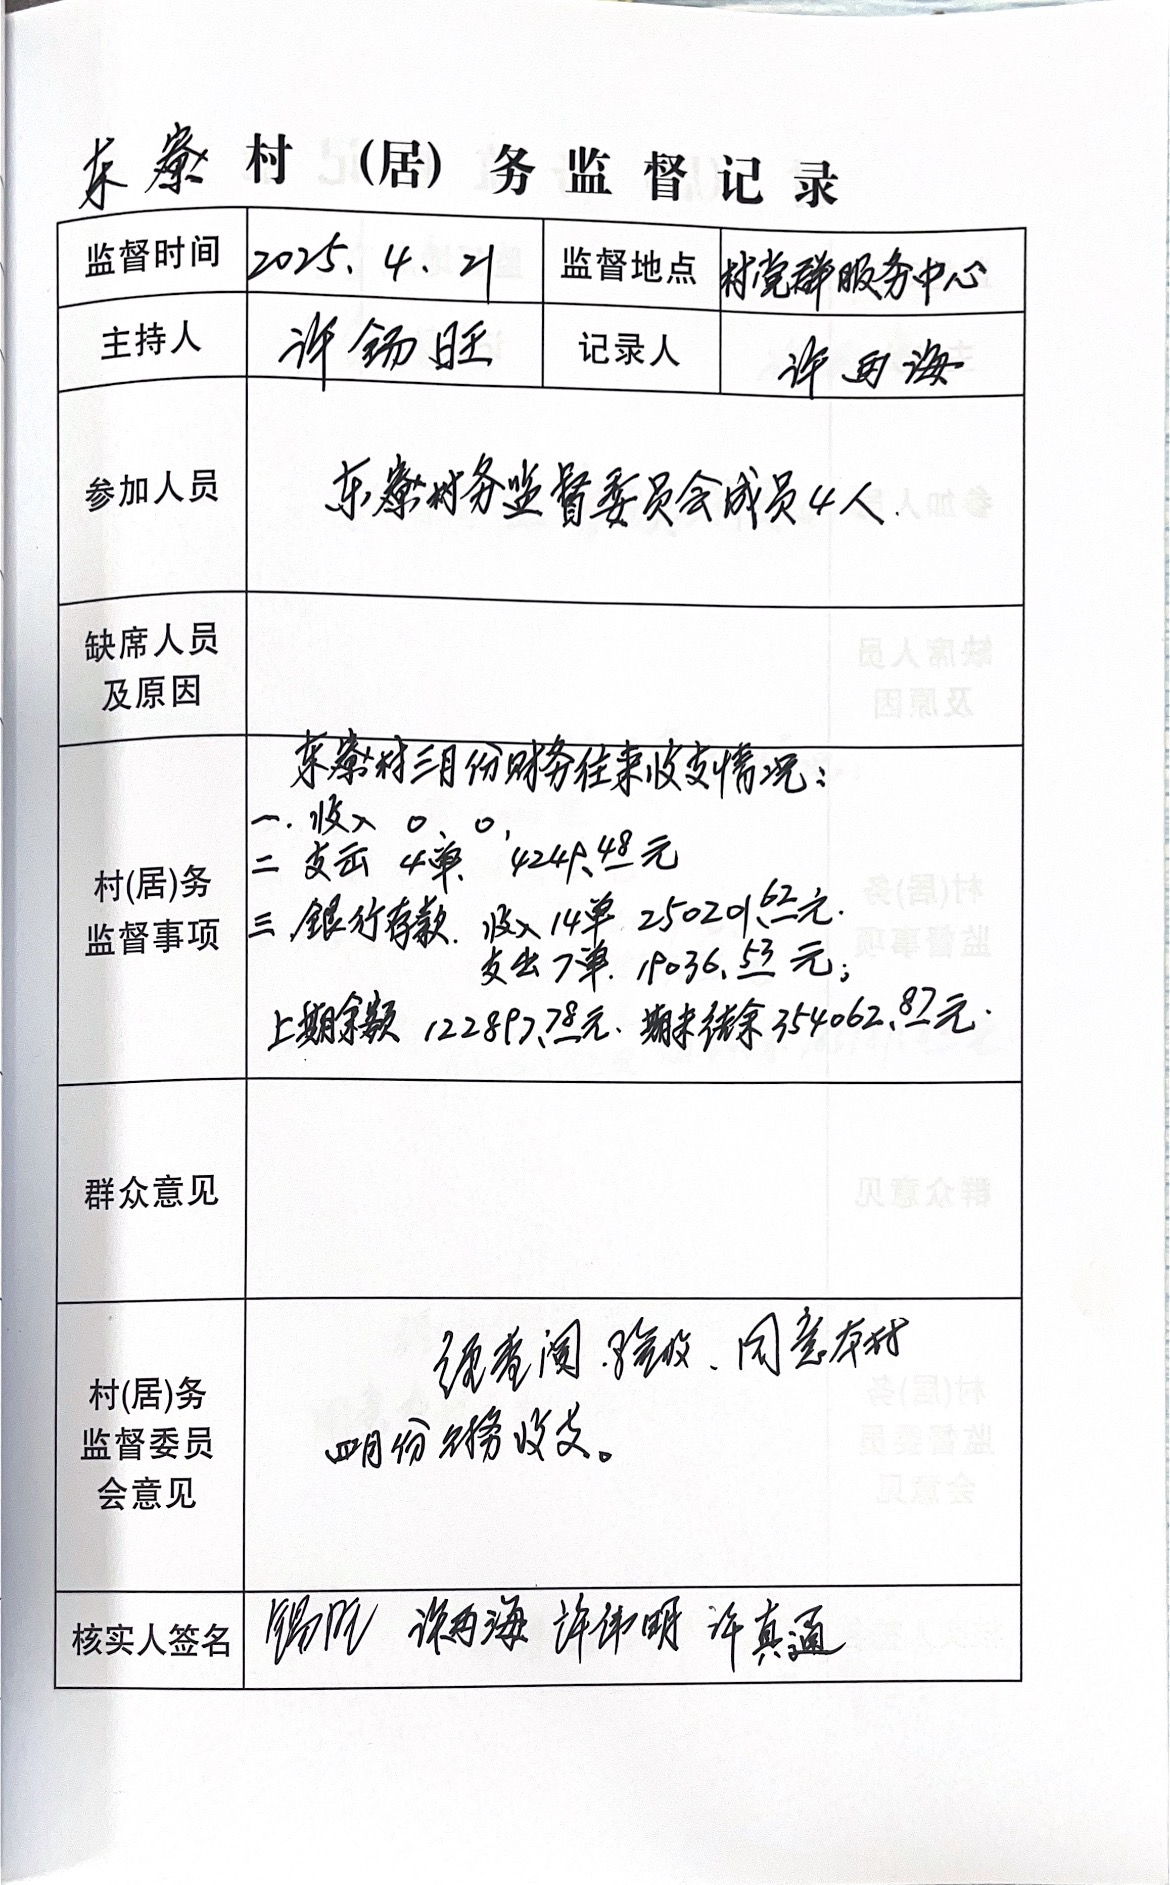 东寮村(居)务监督记录
监督时间 2025.4.21 监督地点 村党群服务中心
主持人 许锡旺 记录人 许雨海
参加人员 东寮村务监督委员会成员4人.
缺席人员
及原因
东寮村三月份财务往来收支情况:
一.收入 0、0,
二 支出 4单 4249.48元
村(居)务
监督事项
三.银行存款.收入14单 250201.62元.
支出7单.19036.53元;
上期余额 122897.78元.期末结余354062.87元.
群众意见
村(居)务
监督委员
会意见
经查阅.验收、同意本村
四月份财务收支。
核实人签名 锡旺 许雨海 许伟明 许真通